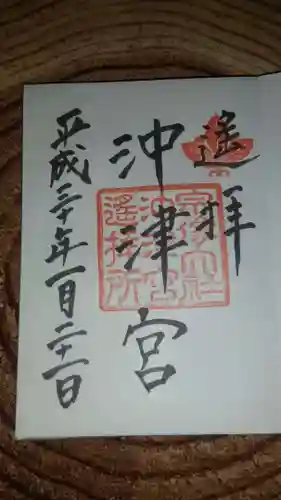 遙拝
沖津宮
宗像大社
沖津宮
遙拝所
平成三十年一月二十一日